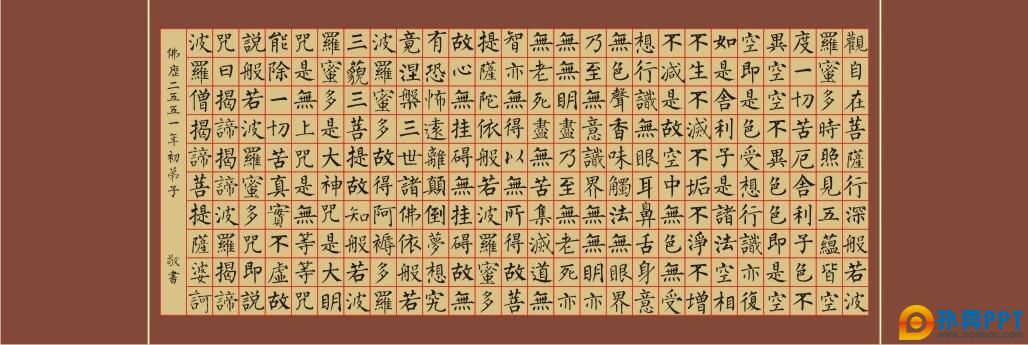 觀自在菩薩行深般若波
羅蜜多時照見五蘊皆空
度一切苦厄舍利子色不
異空空不異色色即是空
空即是色受想行識亦復
如是舍利子是諸法空相
不生不滅不垢不淨不增
不減是故空中無色無受
想行識無眼耳鼻舌身意
無色聲香味觸法無眼界
乃至無意識界無無明亦
無無明盡乃至無老死亦
無老死盡無苦集滅道無
智亦無得以無所得故菩
提薩陀依般若波羅蜜多
故心無挂礙無挂礙故無
有恐怖遠離顛倒夢想究
竟涅槃三世諸佛依般若
波羅蜜多故得阿褥多羅
三藐三菩提故知般若波
羅蜜多是大神咒是大明
咒是無上咒是無等等咒
能除一切苦真實不虛故
說般若波羅蜜多咒即說
咒曰揭諦揭諦波羅揭諦
波羅僧揭諦菩提薩婆訶
佛歷二五五一年初弟子 敬書
扑奔PPT
www.pooban.com